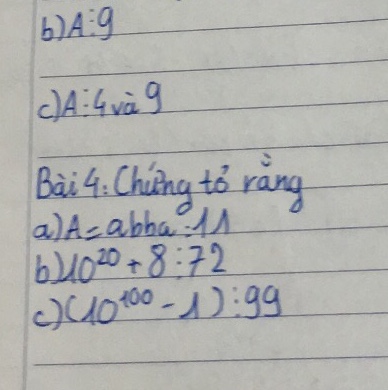 b) A⋮9
c) A⋮4 và 9
Bài 4: Chứng tỏ rằng
a) A = abba ⋮ 11
b) 10²⁰ + 8 ⋮ 72
c) (10¹⁰⁰ - 1) ⋮ 99